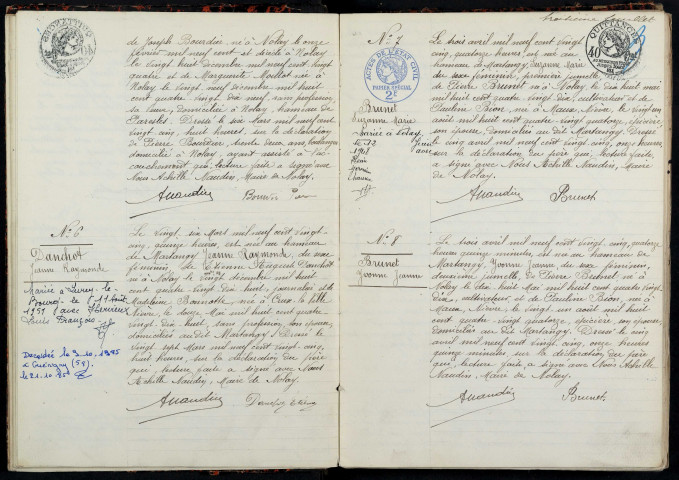 QUITTANCE
de Joseph Bourdier né à Nolay le onze
février mil neuf cent et décédé à Nolay
le vingt huit décembre mil neuf cent vingt
quatre et de Marguerite Maillot née à
Nolay le vingt neuf décembre mil huit
cent quatre vingt dix neuf, sans profession
sa veuve, domiciliée à Nolay, hameau de
Dressé le six Mars mil neuf cent
vingt cinq, huit heures, sur la déclaration
de Pierre Bourdier, trente deux ans,
domicilié à Nolay, ayant assisté à l'ac-
couchement qui, lecture faite a signé avec
Nous Achille Naudin, Maire de Nolay.
ANaudin
N° 6
Danchot
Jeanne Raymonde
Mariée à Lurcy-le-
Bourg le 11 Août
1951 avec
Louis François
Décédée le 9.10.1985
à Guérigny (58)
le 21.10.85
Le vingt six Mars mil neuf cent vingt-
cinq, quinze heures, est née au hameau
de Martangy Jeanne Raymonde, du sexe
féminin, de Etienne August Danchot
né à Nolay le vingt décembre mil huit
cent quatre-vingt dix huit, journalier et de
Madeleine née à Crux la Ville
Nièvre, le douze Mai mil huit cent quatre-
vingt dix huit, sans profession, son épouse,
domiciliés au dit Martangy. Dressé le
vingt sept Mars mil neuf cent vingt cinq,
huit heures, sur la déclaration du père
qui, lecture faite a signé avec Nous
Achille Naudin, Maire de Nolay.
ANaudin
troisième
N° 7
Brunet
Suzanne Marie
Mariée à
le 12
1947
ACTES DE L'ÉTAT CIVIL
PAPIER SPÉCIAL
2F
QUITTANCE
40
Le trois avril mil neuf cent vingt
cinq, quatorze heures, est née au
hameau de Martangy, Suzanne Marie
du sexe féminin, première jumelle,
de Pierre Brunet né à Nolay le dix huit mai
mil huit cent quatre vingt dix, cultivateur et de
Pauline Bion, née à Maux, Nièvre, le vingt un
août mil huit cent quatre-vingt quatorze, épicière
son épouse, domiciliés au dit Martangy. Dressé
le cinq avril mil neuf cent vingt cinq, onze heures
sur la déclaration du père qui, lecture faite,
a signé avec Nous Achille Naudin, Maire
de Nolay.
ANaudin Brunet
N° 8
Brunet
Yvonne Jeanne
Le trois avril mil neuf cent vingt cinq, quatorze
heures quinze minutes, est née au hameau de
Martangy, Yvonne Jeanne du sexe féminin,
deuxième jumelle, de Pierre Brunet né à
Nolay le dix huit mai mil huit cent quatre vingt
dix, cultivateur, et de Pauline Bion, née à
Maux, Nièvre, le vingt un août mil huit
cent quatre vingt quatorze, épicière son épouse
domiciliés au dit Martangy. Dressé le cinq
avril mil neuf cent vingt cinq, onze heures
quinze minutes sur la déclaration du père
qui, lecture faite, a signé avec Nous Achille
Naudin, Maire de Nolay.
ANaudin Brunet